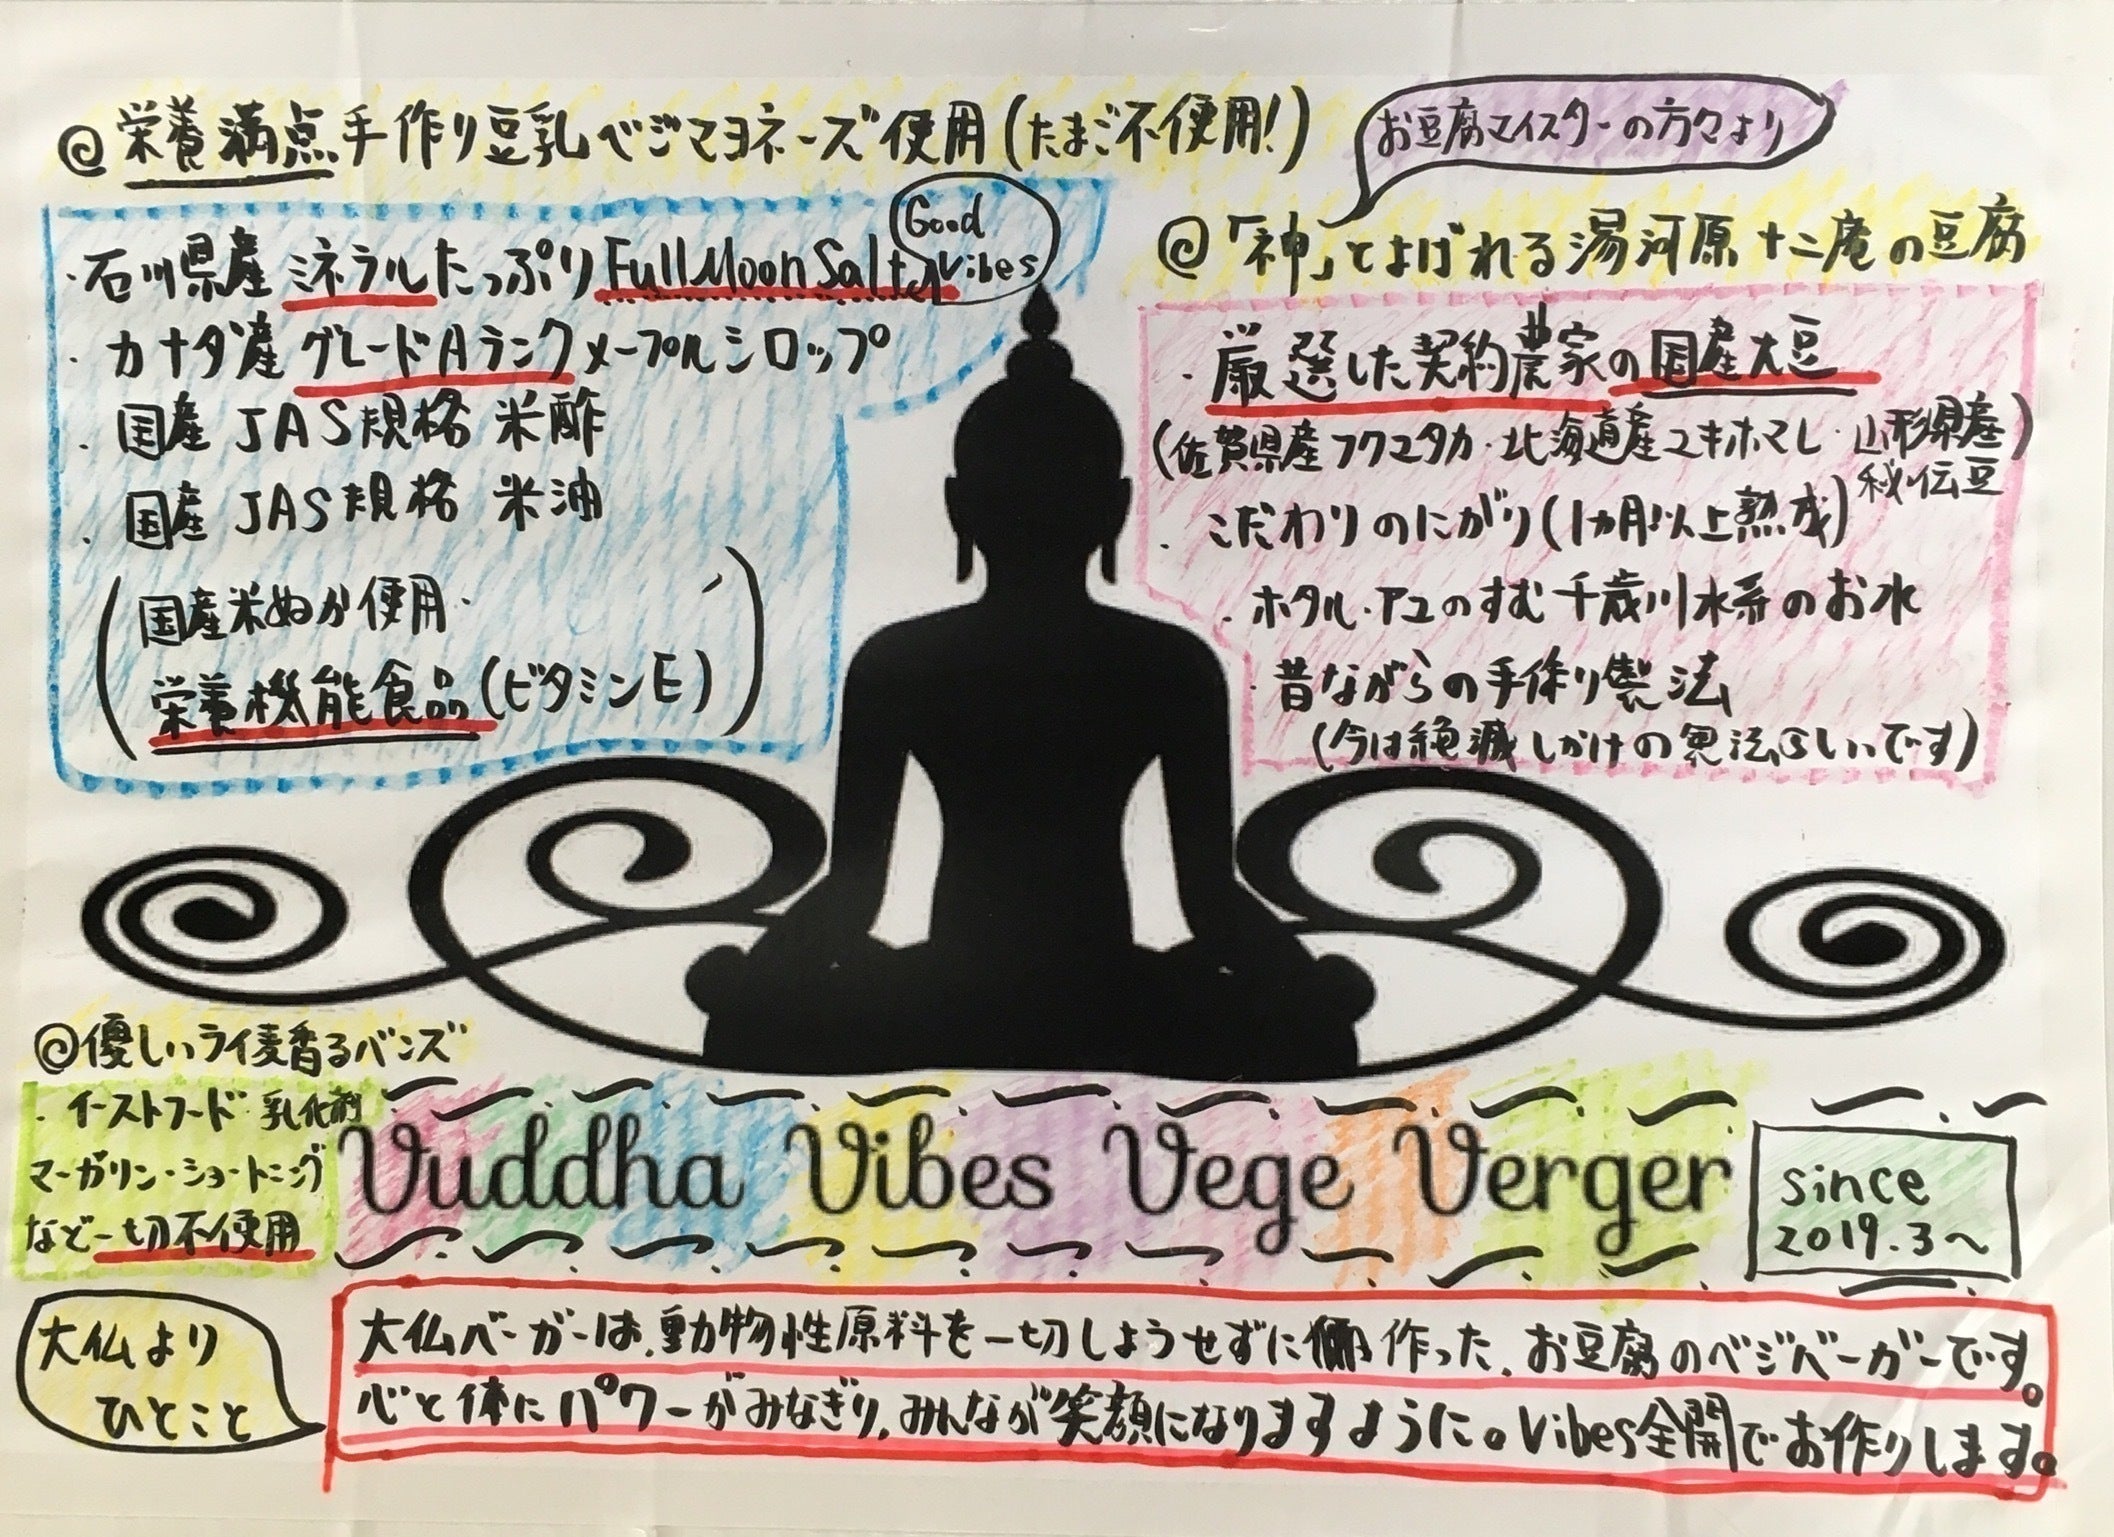 @栄養満点手作り豆乳ベジマヨネーズ使用(たまご不使用!)
・石川県産ミネラルたっぷりFull Moon Salt
Good
Vibes
・カナダ産グレードAランクメープルシロップ
・国産 JAS規格 米酢
・国産 JAS規格 米油
(国産米ぬか使用・
栄養機能食品(ビタミンE))
お豆腐マイスターの方々より
@「神」とよばれる湯河原十二庵の豆腐
・厳選した契約農家の国産大豆
(佐賀県産フクユタカ・北海道産ユキホマレ・山形県産
秘伝豆)
・こだわりのにがり(1カ月以上熟成)
・ホタル・アユのすむ千歳川水系のお水
・昔ながらの手作り製法
(今は絶滅しかけの製法らしいです)
@優しいライ麦香るバンズ
・イーストフード・乳化剤
マーガリン・ショートニング
など一切不使用
Vuddha Vibes Vege Verger
since
2019.3〜
大仏より
ひとこと
大仏バーガーは、動物性原料を一切しようせずに作った、お豆腐のベジバーガーです。
心と体にパワーがみなぎり、みんなが笑顔になりますように。Vibes全開でお作りします。